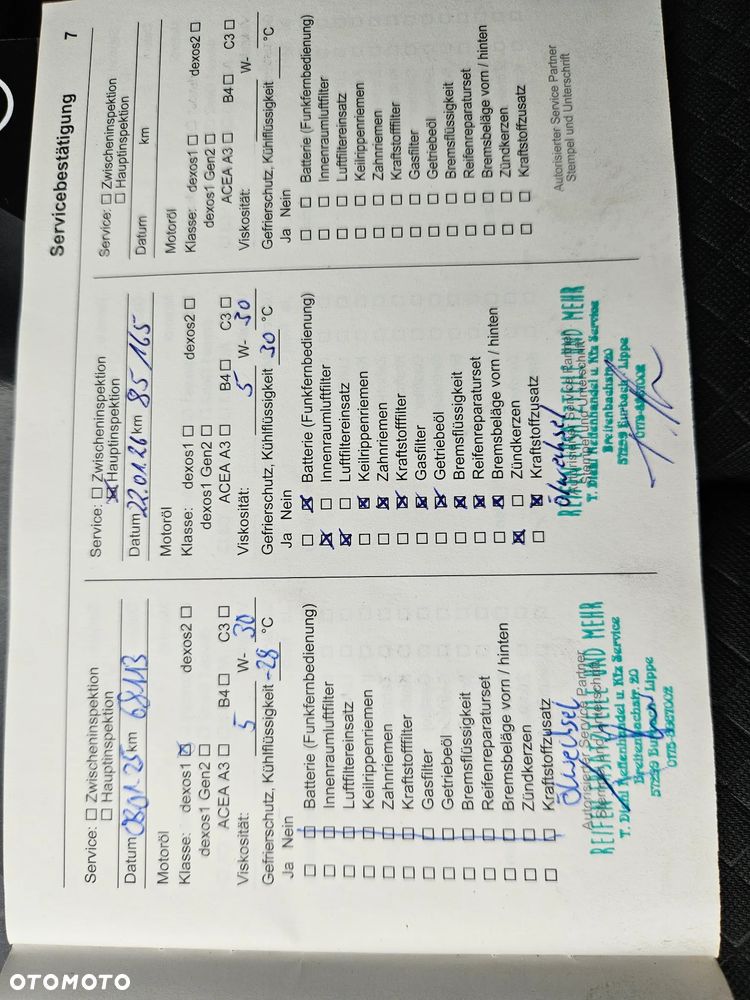 Servicebestätigung 7
Service: ☐ Zwischeninspektion
☐ Hauptinspektion
Datum 08.01.25 km 68113
Motoröl
Klasse: dexos1 ☒ dexos2 ☐
dexos1 Gen2 ☐
ACEA A3 ☐ B4 ☐ C3 ☐
Viskosität: 5 W- 30
Gefrierschutz, Kühlflüssigkeit -28 °C
Ja Nein
☐ ☐ Batterie (Funkfernbedienung)
☐ ☐ Innenraumluftfilter
☐ ☐ Luftfiltereinsatz
☐ ☐ Keilrippenriemen
☐ ☐ Zahnriemen
☐ ☐ Kraftstofffilter
☐ ☐ Gasfilter
☐ ☐ Getriebeöl
☐ ☐ Bremsflüssigkeit
☐ ☐ Reifenreparaturset
☐ ☐ Bremsbeläge vorn / hinten
☐ ☐ Zündkerzen
☐ ☐ Kraftstoffzusatz
Ölwechsel
Autorisierter Service Partner
Stempel und Unterschrift
REIFEN UND MEHR
T. Reifenhandel u. Kfz Service
20
57299 Lippe
Service: ☐ Zwischeninspektion
☒ Hauptinspektion
Datum 22.01.26 km 85 165
Motoröl
Klasse: dexos1 ☐ dexos2 ☐
dexos1 Gen2 ☐
ACEA A3 ☐ B4 ☐ C3 ☐
Viskosität: 5 W- 30
Gefrierschutz, Kühlflüssigkeit 30 °C
Ja Nein
☐ ☒ Batterie (Funkfernbedienung)
☒ ☐ Innenraumluftfilter
☒ ☐ Luftfiltereinsatz
☐ ☒ Keilrippenriemen
☐ ☒ Zahnriemen
☐ ☒ Kraftstofffilter
☐ ☒ Gasfilter
☐ ☒ Getriebeöl
☐ ☒ Bremsflüssigkeit
☐ ☒ Reifenreparaturset
☐ ☒ Bremsbeläge vorn / hinten
☒ ☐ Zündkerzen
☐ ☒ Kraftstoffzusatz
Ölwechsel
Autorisierter Service Partner
Stempel und Unterschrift
REIFEN UND MEHR
T. Reifenhandel u. Kfz Service
57299 Burbach Lippe
Service: ☐ Zwischeninspektion
☐ Hauptinspektion
Datum km
Motoröl
Klasse: dexos1 ☐ dexos2 ☐
dexos1 Gen2 ☐
ACEA A3 ☐ B4 ☐ C3 ☐
Viskosität: W-
Gefrierschutz, Kühlflüssigkeit °C
Ja Nein
☐ ☐ Batterie (Funkfernbedienung)
☐ ☐ Innenraumluftfilter
☐ ☐ Luftfiltereinsatz
☐ ☐ Keilrippenriemen
☐ ☐ Zahnriemen
☐ ☐ Kraftstofffilter
☐ ☐ Gasfilter
☐ ☐ Getriebeöl
☐ ☐ Bremsflüssigkeit
☐ ☐ Reifenreparaturset
☐ ☐ Bremsbeläge vorn / hinten
☐ ☐ Zündkerzen
☐ ☐ Kraftstoffzusatz
Autorisierter Service Partner
Stempel und Unterschrift
OTOMOTO